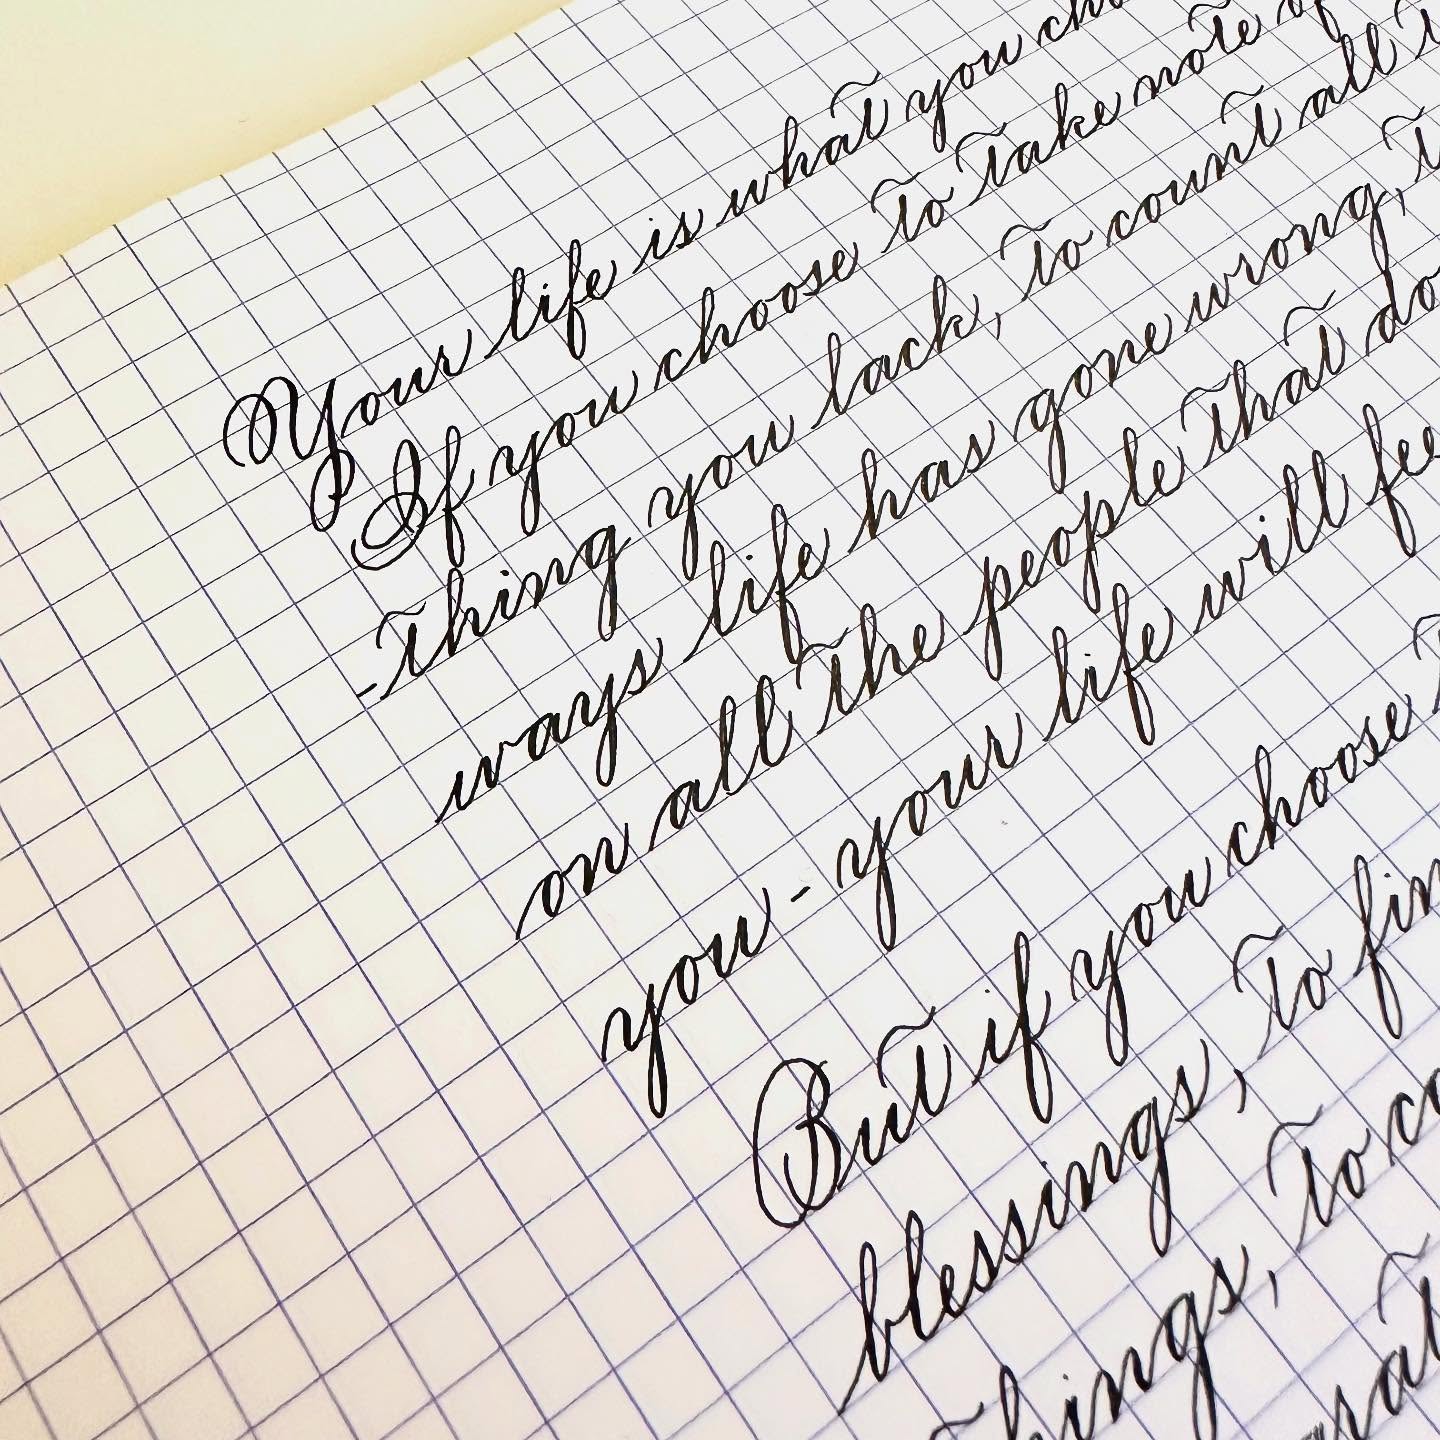 Your life is what you cho
If you choose to take note of
-thing you lack, to count all t
ways life has gone wrong, t
on all the people that do
you - your life will fee
But if you choose t
blessings, to fin
things, to co